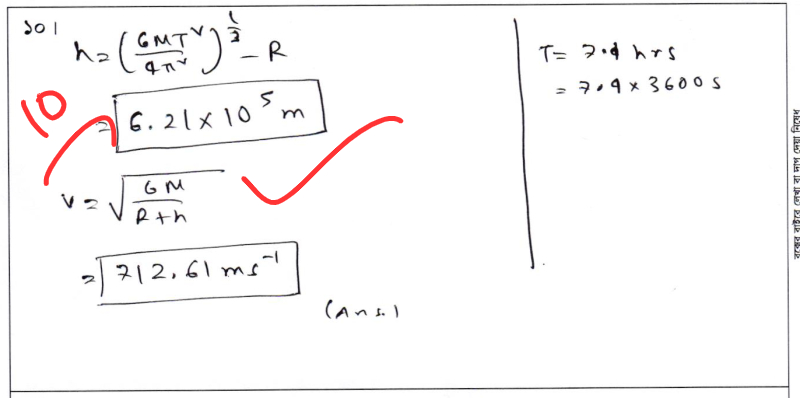 ১০।
h = (GMT²/4π²)^(1/3) - R
10
= 6.21 × 10⁵ m
v = √(GM/(R+h))
= 712.61 ms⁻¹
(Ans.)
T = 7.4 hrs
= 7.4 × 3600 s
বক্সের বাইরে লেখা বা দাগ দেয়া নিষেধ